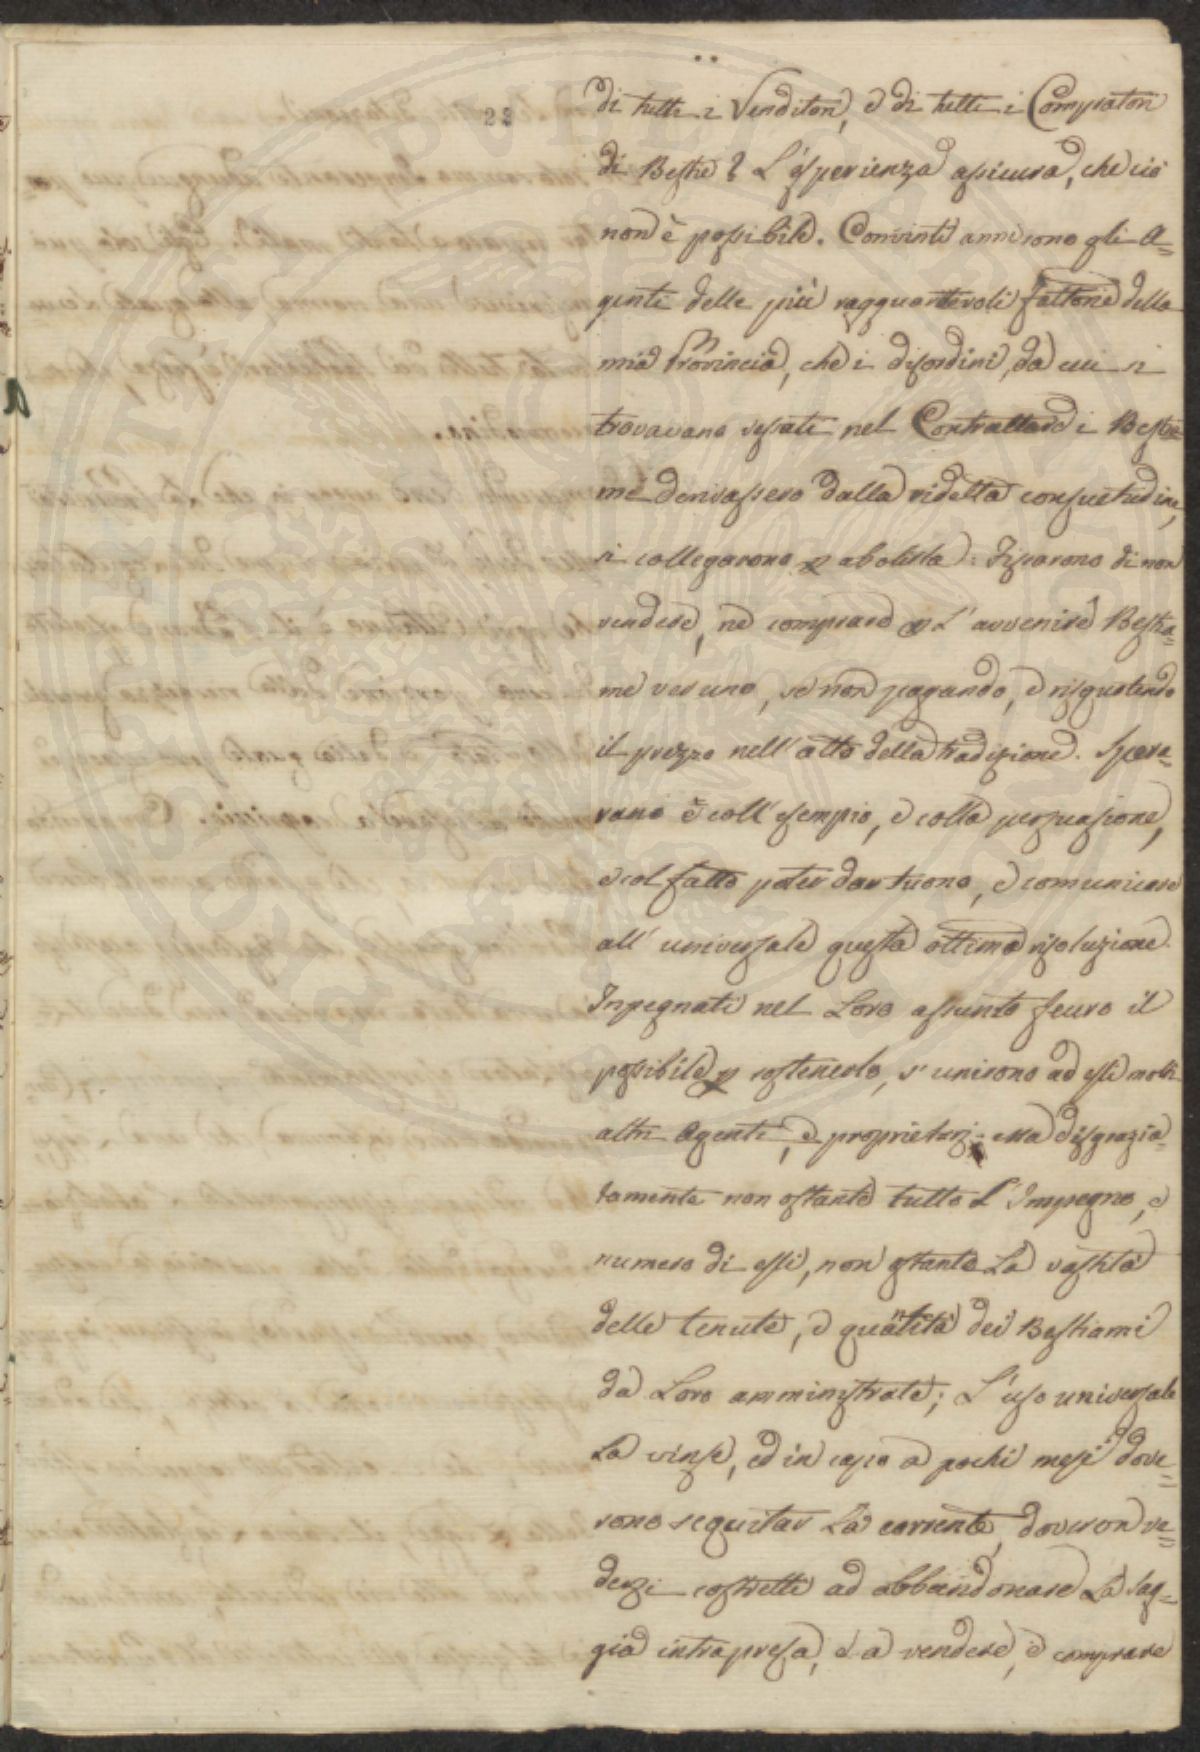 23
di tutti i Venditori, e di tutti i Compratori
di Bestie? L'esperienza assicura, che ciò
non è possibile. Convinti anni sono gli A=
genti delle più ragguardevoli fattorie della
mia Provincia, che i disordini, da cui si
trovavano vessati nel Contrattare i Bestia=
me derivassero dalla ridetta consuetudine,
si collegarono p abolirla: Fissarono di non
vendere, nè comprare p L'avvenire Bestia=
me veruno, se non pagando, e risquotendo
il prezzo nell'atto della tradizione. Spera=
vano e coll'esempio, e colla persuasione,
e col fatto poter dar tuono, e comunicare
all'universale questa ottima risoluzione.
Inpegnati nel Loro assunto feuro il
possibile p sostenerlo, s'unirono ad essi molti
altri Agenti, e proprietarj; Ma disgrazia=
tamente non ostante tutto L'Impegno, e
numero di essi, non ostante La vastità
delle tenute, e quantità dei Bestiami
da Loro amministrate; L'uso universale
La vinse, ed in capo a pochi mesi dove=
rono sequitar La corrente, doveron ve=
dersi costretti ad abbandonare La sag=
gia intrapresa, e a vendere, e comprare